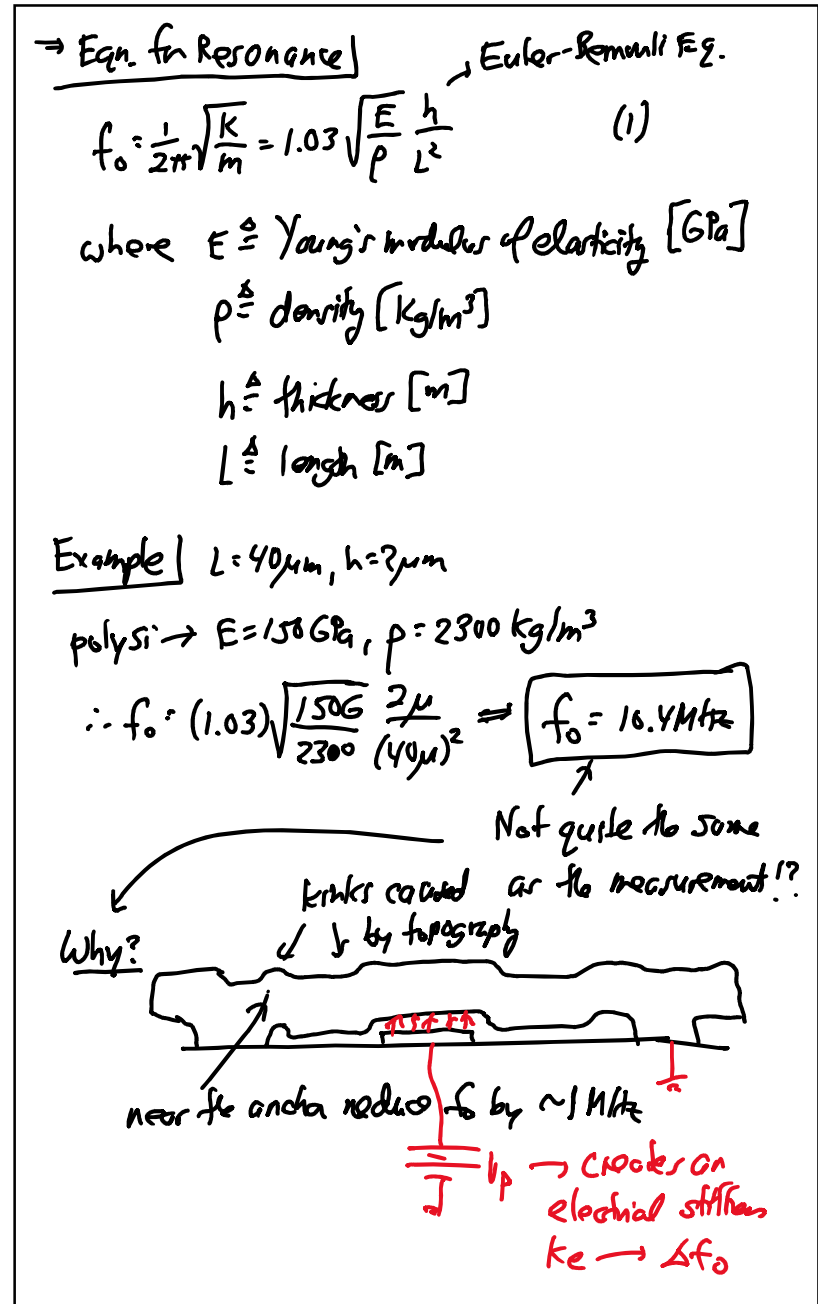 → Eqn. for Resonance
Euler-Bernoulli Eq.
f₀ = 1/2π √(k/m) = 1.03 √(E/ρ) h/L² (1)
where E ≜ Young's modulus of elasticity [GPa]
ρ ≜ density [kg/m³]
h ≜ thickness [m]
L ≜ length [m]
Example L = 40μm, h = 2μm
polysi → E = 150GPa, ρ = 2300 kg/m³
∴ f₀ = (1.03) √(150G/2300) 2μ/(40μ)² ⇒ f₀ = 10.4MHz
Not quite the same
as the measurement!?
kinks caused
by topography
Why?
near the anchor reduce f₀ by ~1 MHz
Vp → creates an
electrical stiffness
ke → Δf₀